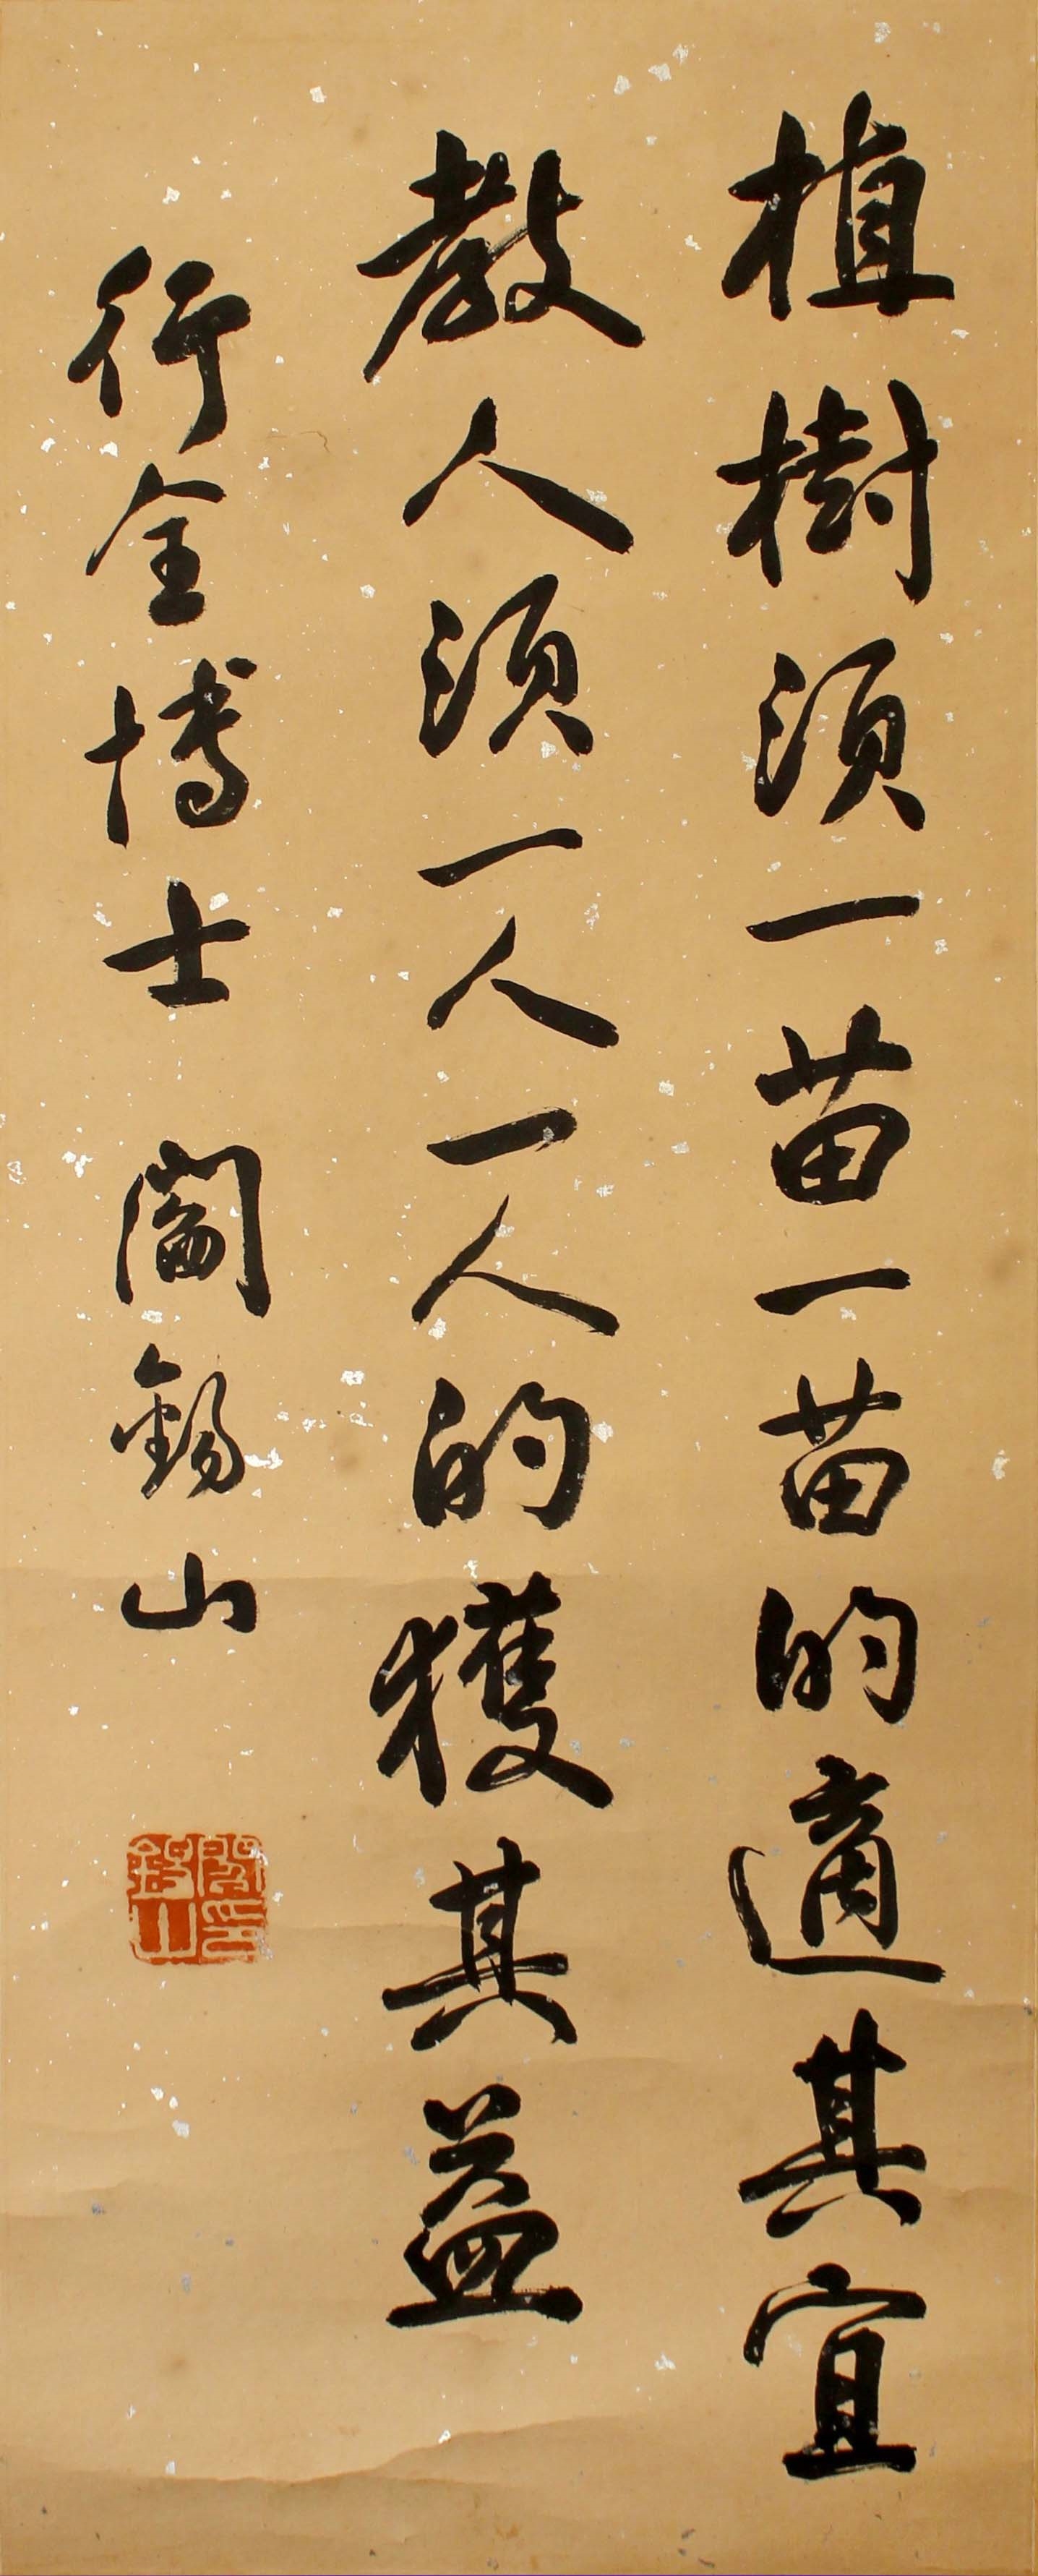 植樹須一苗一苗的適其宜
教人須一人一人的獲其益
行全博士 閻錫山
閻印
錫山